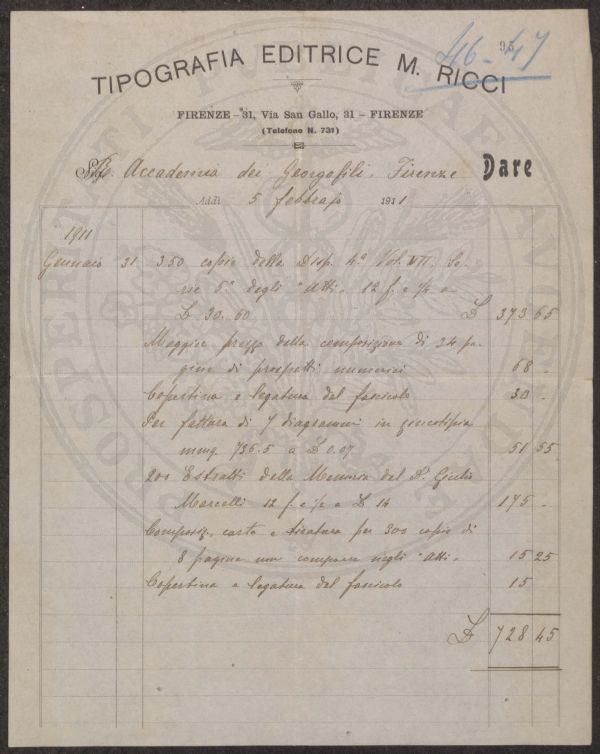 46-47
95
TIPOGRAFIA EDITRICE M. RICCI
FIRENZE - 31, Via San Gallo, 31 - FIRENZE
(Telefono N. 731)
R. Accademia dei Georgofili. Firenze Dare
Addì 5 febbraio 1911
1911
Gennaio 31 350 copie della Disp. 4ª Vol. VII. Se-
rie 5ª degli "Atti" 12 f. e 1/4 a
£ 30.60 £ 373 65
Maggior prezzo della composizione di 34 pa-
gine di prospetti numerici 68 -
Copertina e legatura del fascicolo 30 -
Per fattura di 7 diagrammi in zincotipia
mmq. 736.5 a £ 0.07 51 55
200 Estratti della Memoria del Dr. Giulio
Marcelli 12 f. e 1/2 a £ 14 175 -
Composiz. carta e tiratura per 300 copie di
8 pagine non comparse negli "Atti" 15 25
Copertina e legatura del fascicolo 15
£ 728 45
PROSPERITATI PUBLICAE AUGENDAE